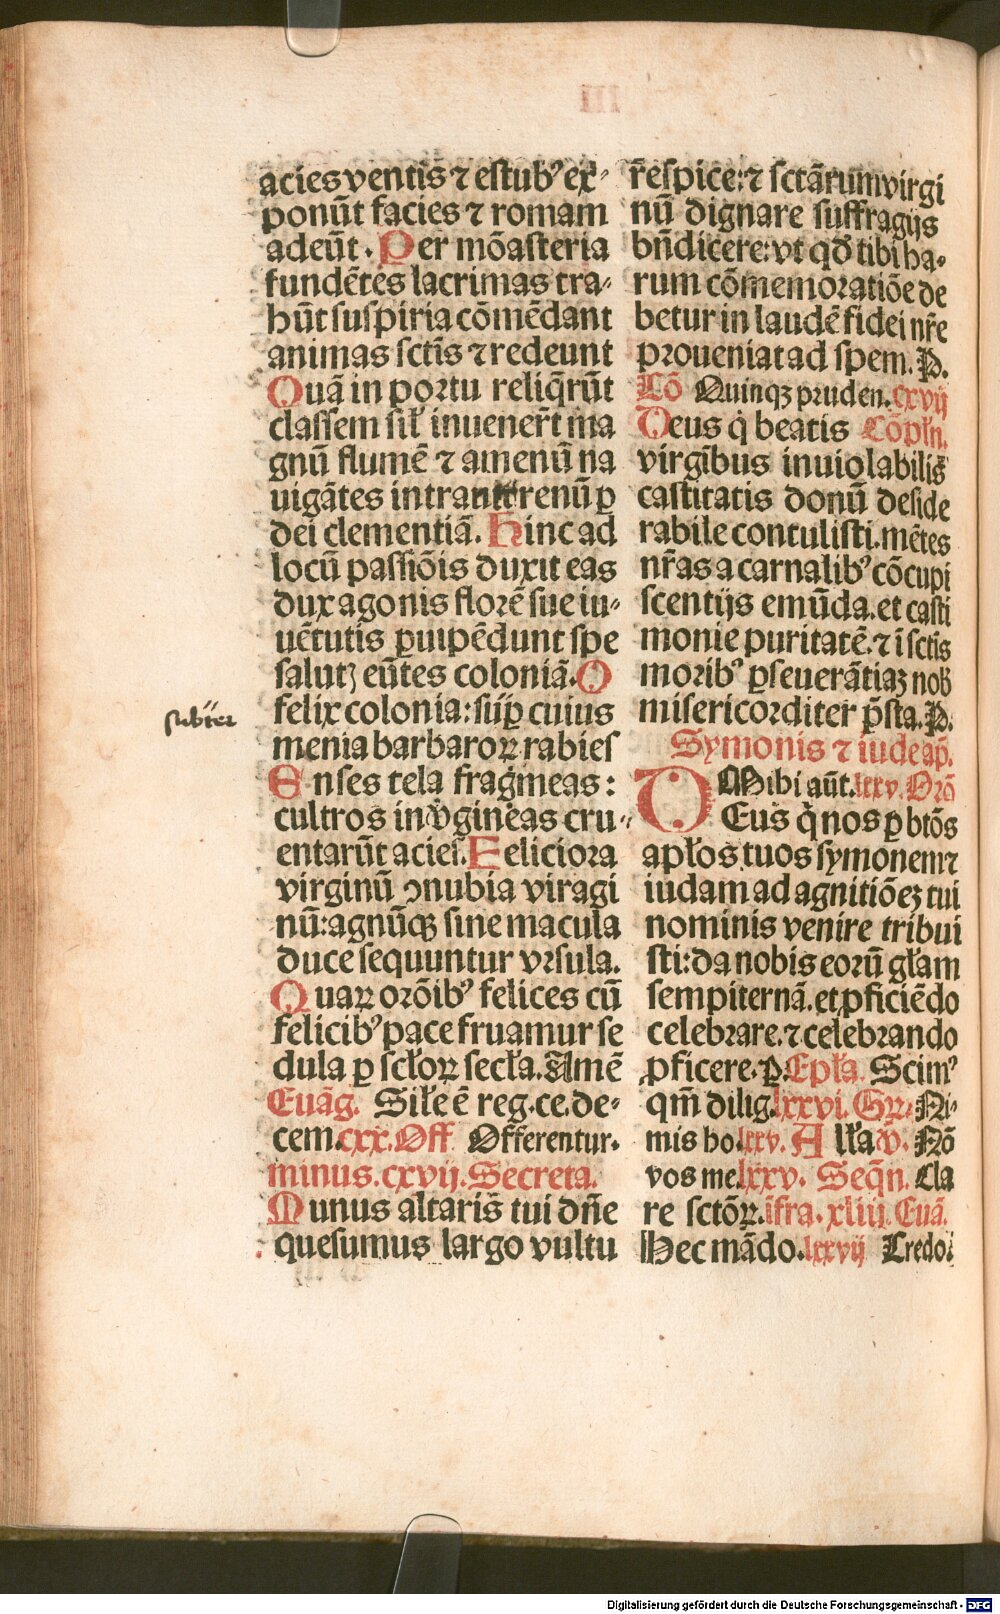 acies ventis ⁊ estubꝰ ex⸗
ponūt facies ⁊ romam
adeūt. Per mōasteria
fundētes lacrimas tra⸗
hūt suspiria cōmēdant
animas sctīs ⁊ redeunt
Quā in portu reliq̄rūt
classem sił inuener̄t ma
gnū flumē ⁊ amenū na
uigātes intrant renū ꝑ
dei clementiā. Hinc ad
locū passiōis duxit eas
dux agonis florē sue iu⸗
uētutis ꝑuipēdunt spe
salutꝫ eūtes coloniā. O
felix colonia: sūꝑ cuius
menia barbaroꝝ rabies
Enses tela frag̍meas:
cultros in v̍gineas cru⸗
entarūt acies. Feliciora
virginū ꝯnubia viragi
nū: agnūqꝫ sine macula
duce sequuntur vrsula.
Quaꝝ orōibꝰ felices cū
felicibꝰ pace fruamur se
dula ꝑ scłoꝝ secła. Amē
Euāg. Siłe ē reg. ce. de⸗
cem. cxx. Off Offerentur.
minus. cxvij. Secreta.
Munus altaris̄ tui dn̄e
quesumus largo vultu
subīter
r̄espice: ⁊ sctārum virgi
nū dignare suffragijs
bn̄dicere: vt qd̄ tibi ha⸗
rum cōmemoratiōe de
betur in laudē fidei nr̄e
proueniat ad spem. P.
Cō Quinqꝫ pruden. cxvij
Deus q̍ beatis Cōpłn.
virgībus inuiolabilis̄
castitatis donū deside
rabile contulisti. mētes
nr̄as a carnalibꝰ cōcupi
scentijs emūda. et casti
monie puritatē. ⁊ ī sctīs
moribꝰ ꝑseuerātiaꝫ nob̄
misericorditer p̄sta. P.
Symonis ⁊ iude ap̄.
Mihi aūt. lxxv. Orō
DEus q̍ nos ꝑ btōs
apłos tuos symonem ⁊
iudam ad agnitiōeꝫ tui
nominis venire tribui
sti: da nobis eorū głam
sempiternā. et ꝓficiēdo
celebrare. ⁊ celebrando
ꝓficere. ꝑ. Epła. Scimꝰ
qm̄ dilig. lxxvi. Gꝝ. Ni⸗
mis ho. lxxv. A lła v̄. Nō
vos me. lxxv. Seqn̄. Cla
re sctōꝝ. īfra. xliij. Euā.
Hec mādo. lxxvij Credo:
Digitalisierung gefördert durch die Deutsche Forschungsgemeinschaft - DFG